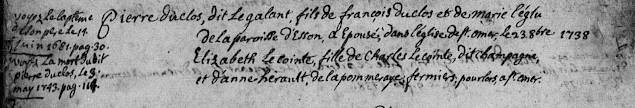 voyez le baptême
de son pere le 14
juin 1681. pag. 30.
voyez La mort dudit
pierre duclos, le 3
may 1743. pag. 114.
Pierre duclos, dit Le galant, fils de françois duclos et de marie léglu
de La paroisse d'Esson, a Epousé, dans l'église de st. omer, Le 23 8bre 1738
Elizabeth Lecointe, fille de Charles Lecointe, dit champagne,
et d'anne hérault de La pommeraye; fermiers, pour lors, a st. omer.